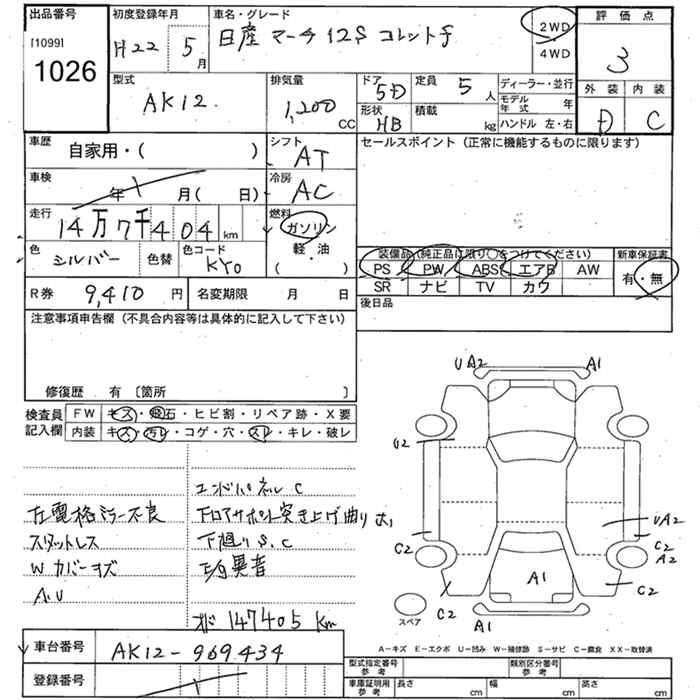 出品番号
[1099]
1026
初度登録年月
H22 5月
車名・グレード
日産 マーチ 12S コレット
2WD
4WD
評価点
3
外装 内装
D C
型式
AK12
排気量
1,200 CC
ドア 5D
定員 5人
形状 HB
積載 kg
ディーラー・並行
モデル年式 年
ハンドル 左・右
車歴
自家用・( )
シフト AT
セールスポイント(正常に機能するものに限ります)
車検
年 月( 日)
冷房 AC
走行
14万7千404km
燃料
ガソリン
軽・油
( )
色 シルバー
色替
色コード KY0
装備品(純正品に限り○をつけてください)
新車保証書
PS PW ABS エアB AW
有・無
SR ナビ TV カワ
R券 9,410円
名変期限 月 日
後日品
注意事項申告欄(不具合内容等は具体的に記入して下さい)
修復歴 有〔箇所 〕
検査員記入欄
FW キズ・飛石・ヒビ割・リペア跡・X要
内装 キズ・汚レ・コゲ・穴・スレ・キレ・破レ
エンドパネル C
左電格ミラー不良
下ロアサポート突き上げ曲り
スタットレス
下廻り S.C
W カバーキズ
E/g異音
A.U
147405 km
UA2 A1
U2
UA2
C2 C2
A2
A1
C2 C2
A1
スペア
A-キズ E-エクボ U-凹み W-補修跡 S-サビ C-腐食 XX-取替済
車台番号
AK12-969434
登録番号
型式指定番号 参考
類別区分番号 参考
車庫証明用 参考
長さ cm
幅 cm
高さ cm